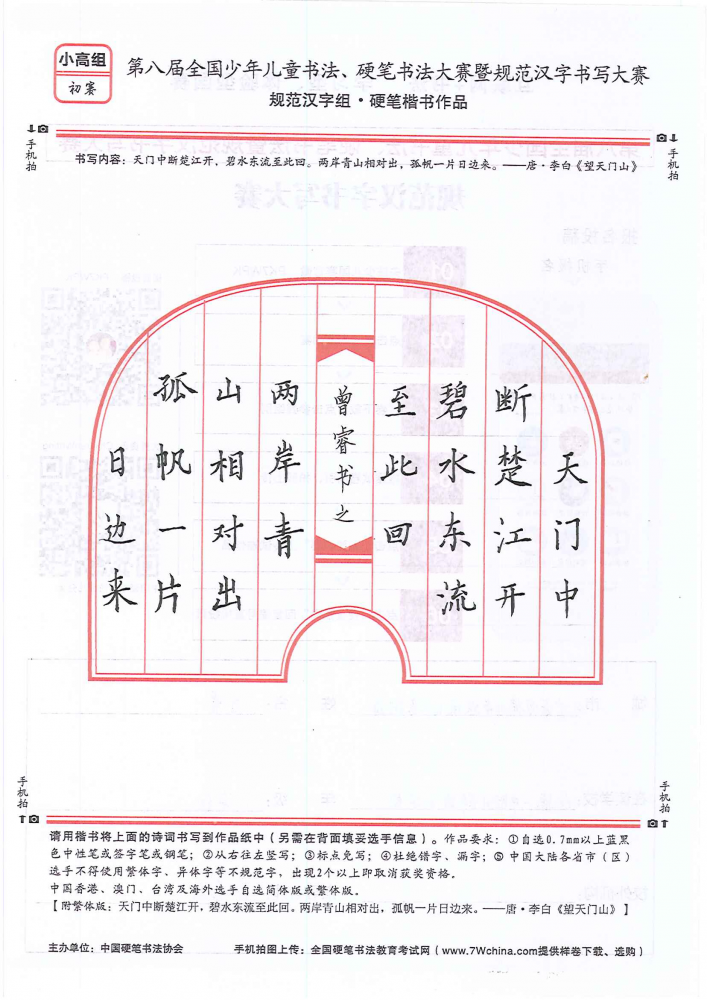 小高组
初赛
第八届全国少年儿童书法、硬笔书法大赛暨规范汉字书写大赛
规范汉字组·硬笔楷书作品
手机拍
手机拍
书写内容：天门中断楚江开，碧水东流至此回。两岸青山相对出，孤帆一片日边来。——唐·李白《望天门山》
天门中
断楚江开
碧水东流
至此回
曾睿书之
两岸青
山相对出
孤帆一片
日边来
手机拍
手机拍
请用楷书将上面的诗词书写到作品纸中（另需在背面填妥选手信息）。作品要求：①自选0.7mm以上蓝黑
色中性笔或签字笔或钢笔；②从右往左竖写；③标点免写；④杜绝错字、漏字；⑤中国大陆各省市（区）
选手不得使用繁体字、异体字等不规范字，出现2个以上即取消获奖资格。
中国香港、澳门、台湾及海外选手自选简体版或繁体版。
【附繁体版：天门中断楚江开，碧水东流至此回。两岸青山相对出，孤帆一片日边来。——唐·李白《望天门山》】
主办单位：中国硬笔书法协会
手机拍图上传：全国硬笔书法教育考试网（www.7Wchina.com提供样卷下载、选购）